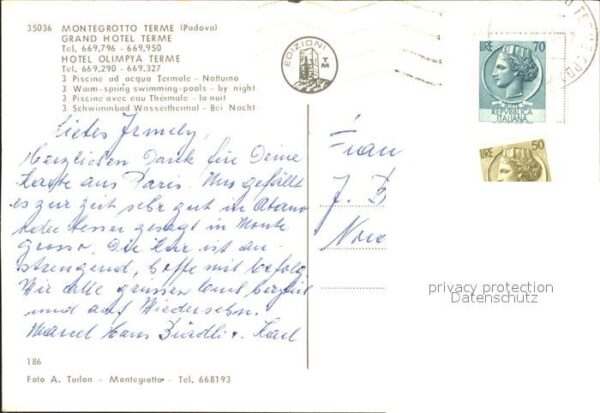 35036 MONTEGROTTO TERME (Padova)
GRAND HOTEL TERME
Tel. 669.796 - 669.950
HOTEL OLIMPYA TERME
Tel. 669.290 - 669.327
3 Piscine ad acqua Termale - Notturno
3 Warm-spring swimming-pools - by night
3 Piscine avec eau Thérmale - la nuit
3 Schwimmbad Wasserthermal - Bei Nacht
EDIZIONI
TM
LIRE 70
REPVBBLICA
ITALIANA
LIRE 50
Liebes Irmely,
Herzlichen Dank für Deine
Karte aus Paris. Uns gefällt
es zur Zeit sehr gut in Abano
oder besser gesagt in Monte
grosso. Die Kur ist an-
strengend, hoffe mit Erfolg.
Wir alle grüssen
und auf Wiedersehn.
Marcel Hans + Karl
Frau
J. B
privacy protection
Datenschutz
186
Foto A. Turlon - Montegrotto - Tel. 668193